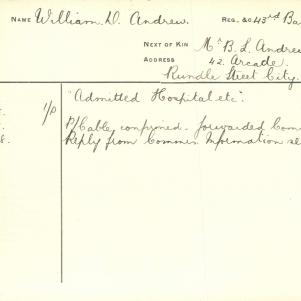 NAME William D. Andrew. REG. &c 43rd Ba
NEXT OF KIN Mr B. L. Andrew
ADDRESS 42. Arcade.
Rundle Street City.
1/P "Admitted Hospital etc".
P/Cable confirmed. forwarded Com
8. Reply from Commrs Information se